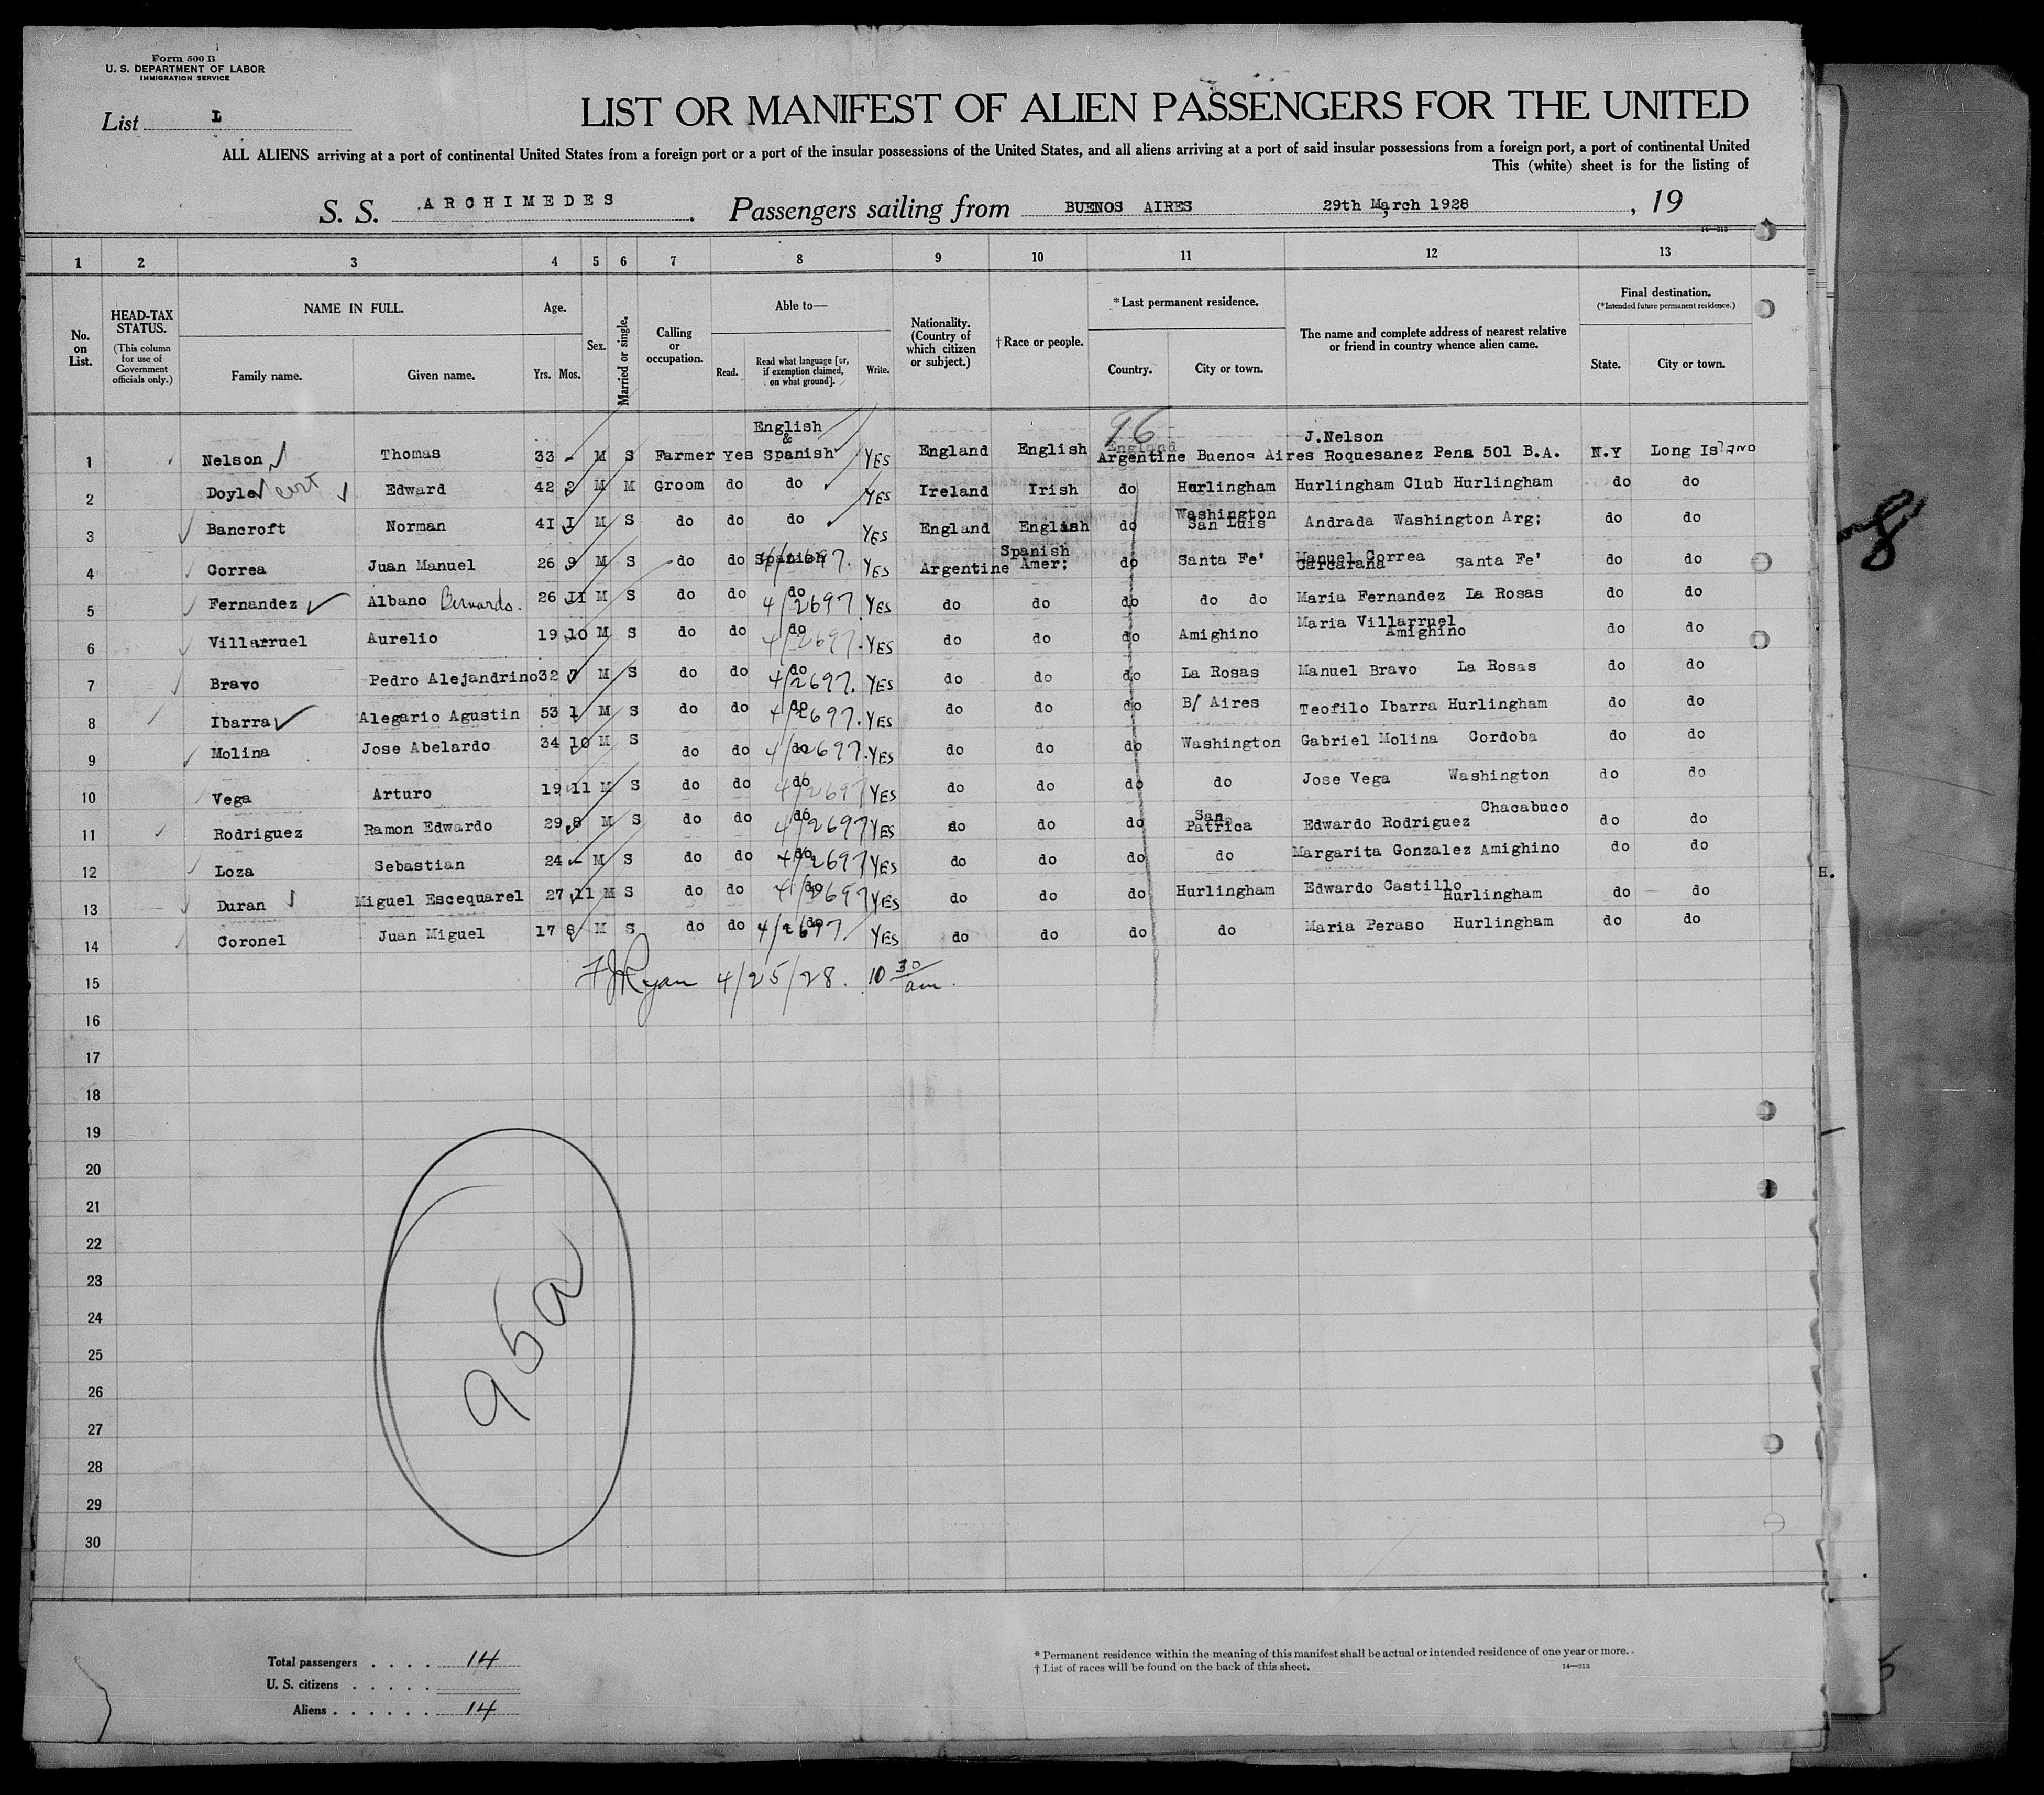 Form 500 B
U. S. DEPARTMENT OF LABOR
IMMIGRATION SERVICE
List L
LIST OR MANIFEST OF ALIEN PASSENGERS FOR THE UNITED
ALL ALIENS arriving at a port of continental United States from a foreign port or a port of the insular possessions of the United States, and all aliens arriving at a port of said insular possessions from a foreign port, a port of continental United
This (white) sheet is for the listing of
S. S. ARCHIMEDES. Passengers sailing from BUENOS AIRES 29th March 1928, 19
14—213
1 2 3 4 5 6 7 8 9 10 11 12 13
No. on List.
HEAD-TAX STATUS.
(This column for use of Government officials only.)
NAME IN FULL.
Family name. Given name.
Age.
Yrs. Mos.
Sex.
Married or single.
Calling or occupation.
Able to—
Read. Read what language [or, if exemption claimed, on what ground]. Write.
Nationality. (Country of which citizen or subject.)
† Race or people.
* Last permanent residence.
Country. City or town.
The name and complete address of nearest relative or friend in country whence alien came.
Final destination.
(*Intended future permanent residence.)
State. City or town.
96
1 Nelson Thomas 33 - M S Farmer Yes English & Spanish YES England English England Argentine Buenos Aires J.Nelson Roquesanez Pena 501 B.A. N.Y Long Island
2 Doyle cert Edward 42 2 M M Groom do do YES Ireland Irish do Hurlingham Hurlingham Club Hurlingham do do
3 Bancroft Norman 4I I M S do do do YES England English do Washington San Luis Andrada Washington Arg; do do
4 Correa Juan Manuel 26 9 M S do do Spanish 4/2697. YES Argentine Spanish Amer; do Santa Fe' Manuel Correa Carcarana Santa Fe' do do
5 Fernandez Albano Bernardo. 26 II M S do do do 4/2697 YES do do do do do Maria Fernandez La Rosas do do
6 Villarruel Aurelio 19 10 M S do do do 4/2697. YES do do do Amighino Maria Villarruel Amighino do do
7 Bravo Pedro Alejandrino 32 7 M S do do do 4/2697. YES do do do La Rosas Manuel Bravo La Rosas do do
8 Ibarra Alegario Agustin 53 1 M S do do do 4/2697. YES do do do B/ Aires Teofilo Ibarra Hurlingham do do
9 Molina Jose Abelardo 34 10 M S do do do 4/2697. YES do do do Washington Gabriel Molina Cordoba do do
10 Vega Arturo 19 11 M S do do do 4/2697 YES do do do do Jose Vega Washington do do
11 Rodriguez Ramon Edwardo 29 8 M S do do do 4/2697 YES do do do San Patrica Edwardo Rodriguez Chacabuco do do
12 Loza Sebastian 24 - M S do do do 4/2697 YES do do do do Margarita Gonzalez Amighino do do
13 Duran Miguel Escequarel 27 11 M S do do do 4/2697 YES do do do Hurlingham Edwardo Castillo Hurlingham do do
14 Coronel Juan Miguel 17 8 M S do do do 4/2697 YES do do do do Maria Peraso Hurlingham do do
15 FJRyan 4/25/28. 10 30 am.
16
17
18
19
20
21
22
23
24
25
26
27
28
29
30
95a
8
H.
Total passengers . . . . 14
U. S. citizens . . . . .
Aliens . . . . . . 14
* Permanent residence within the meaning of this manifest shall be actual or intended residence of one year or more.
† List of races will be found on the back of this sheet. 14—213